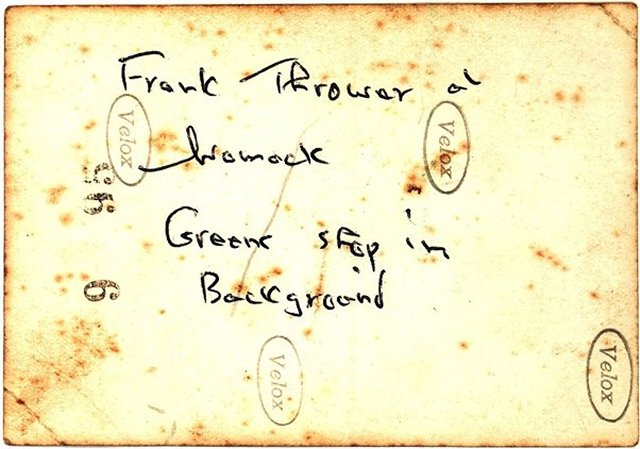 Frank Thrower at
Velox
Velox
Womack
Greens shop in
Background
6
Velox
Velox